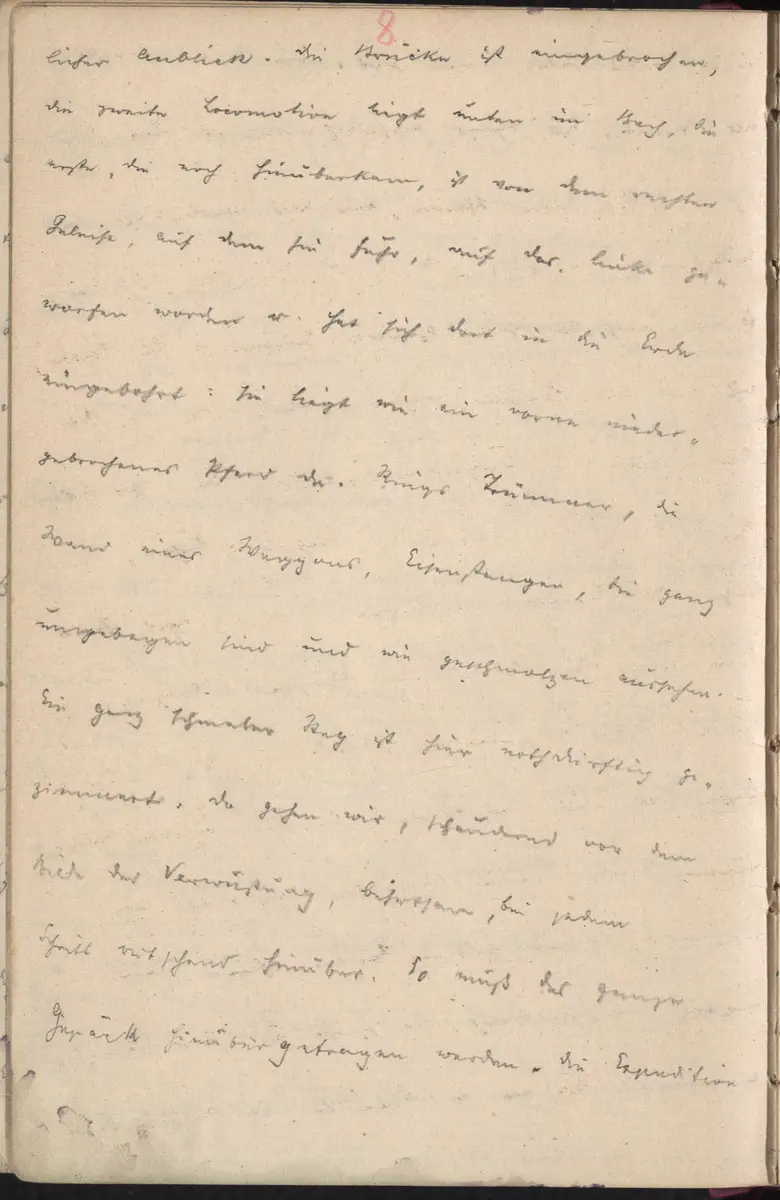 8
licher Anblick. Die Brücke ist eingebrochen,
die zweite Locomotive liegt unten im Bach, die
erste, die noch hinüberkam, ist von dem rechten
Geleise, auf dem sie fuhr, auf das linke ge-
worfen worden u. hat sich dort in die Erde
eingebohrt: sie liegt wie ein vorne nieder-
gebrochenes Pferd da. Rings Trümmer, die
Wand eines Waggons, Eisenstangen, die ganz
umgebogen sind und wie geschmolzen aussehen.
Ein ganz schmaler Steg ist hier nothdürftig ge-
zimmert. Da gehen wir, schaudernd vor dem
Bilde der Verwüstung, behutsam, bei jedem
Schritt rutschend hinüber. So muß das ganze
Gepäck hinüber getragen werden. Die Expedition